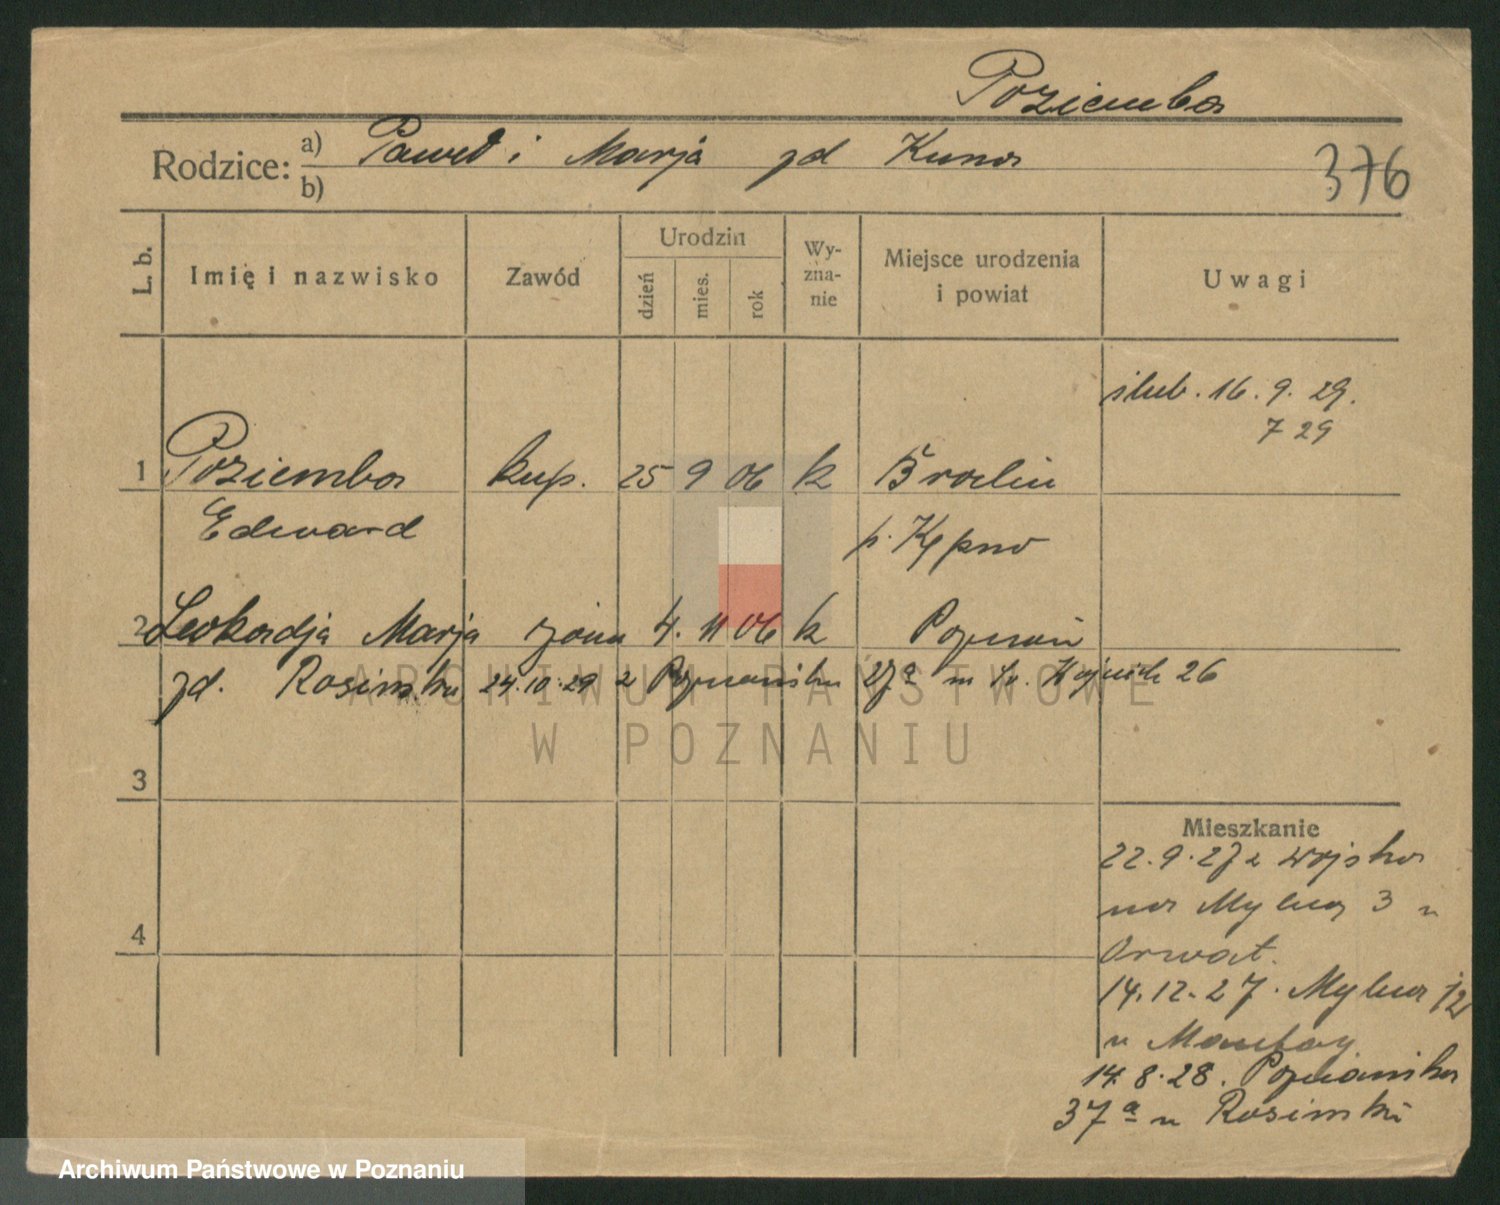 Poziemba
Rodzice: a) Paweł i Marja zd Kuna
b)
376
L. b.
Imię i nazwisko
Zawód
Urodzin
dzień
mies.
rok
Wy-
zna-
nie
Miejsce urodzenia
i powiat
Uwagi
ślub. 16. 9. 29.
7 29
1 Poziemba kup. 25 9 06 k Bralin
Edward p. Kępno
2 Leokadja Marja żona 4. 11 06 k Poznań
zd. Rosinska 24.10.29 z Poznańska 27a m Św. Wojciech 26
3
4
Mieszkanie
22.9.27 z wojska
na Mylna 3 u
Orwat.
14.12.27. Mylna
u
14.8.28. Poznańska
37a u Rosinski
ARCHIWUM PAŃSTWOWE
W POZNANIU
Archiwum Państwowe w Poznaniu